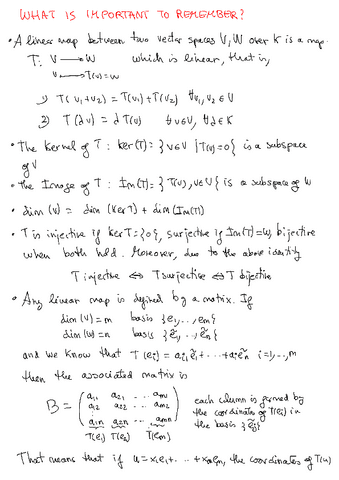 WHAT IS IMPORTANT TO REMEMBER?
• A linear map between two vector spaces V, W over K is a map
T: V → W which is linear, that is,
v → T(v)=w
1) T(v₁+v₂) = T(v₁)+T(v₂) ∀v₁,v₂ ∈ V
2) T(λv) = λT(v) ∀v∈V, ∀λ∈K
• The Kernel of T: Ker(T) = {v∈V | T(v)=0} is a subspace
of V
• The Image of T: Im(T) = {T(v), v∈V} is a subspace of W
• dim(V) = dim(Ker T) + dim(Im(T))
• T is injective if Ker T = {0}, surjective if Im(T)=W, bijective
when both hold. Moreover, due to the above identity
T injective ⇔ T surjective ⇔ T bijective
• Any linear map is defined by a matrix. If
dim(V)=m basis {e₁,..,em}
dim(W)=n basis {ẽ₁,..,ẽn}
and we know that T(ei) = ai1ẽ₁+...+ainẽn i=1,..,m
then the associated matrix is
B = ( a11 a21 ... am1
a12 a22 ... am2
a1n a2n ... amn )
T(e₁) T(e₂) T(em)
each column is formed by
the coordinates of T(ei) in
the basis {ẽj}
That means that if u=x₁e₁+..+xmem, the coordinates of T(u)